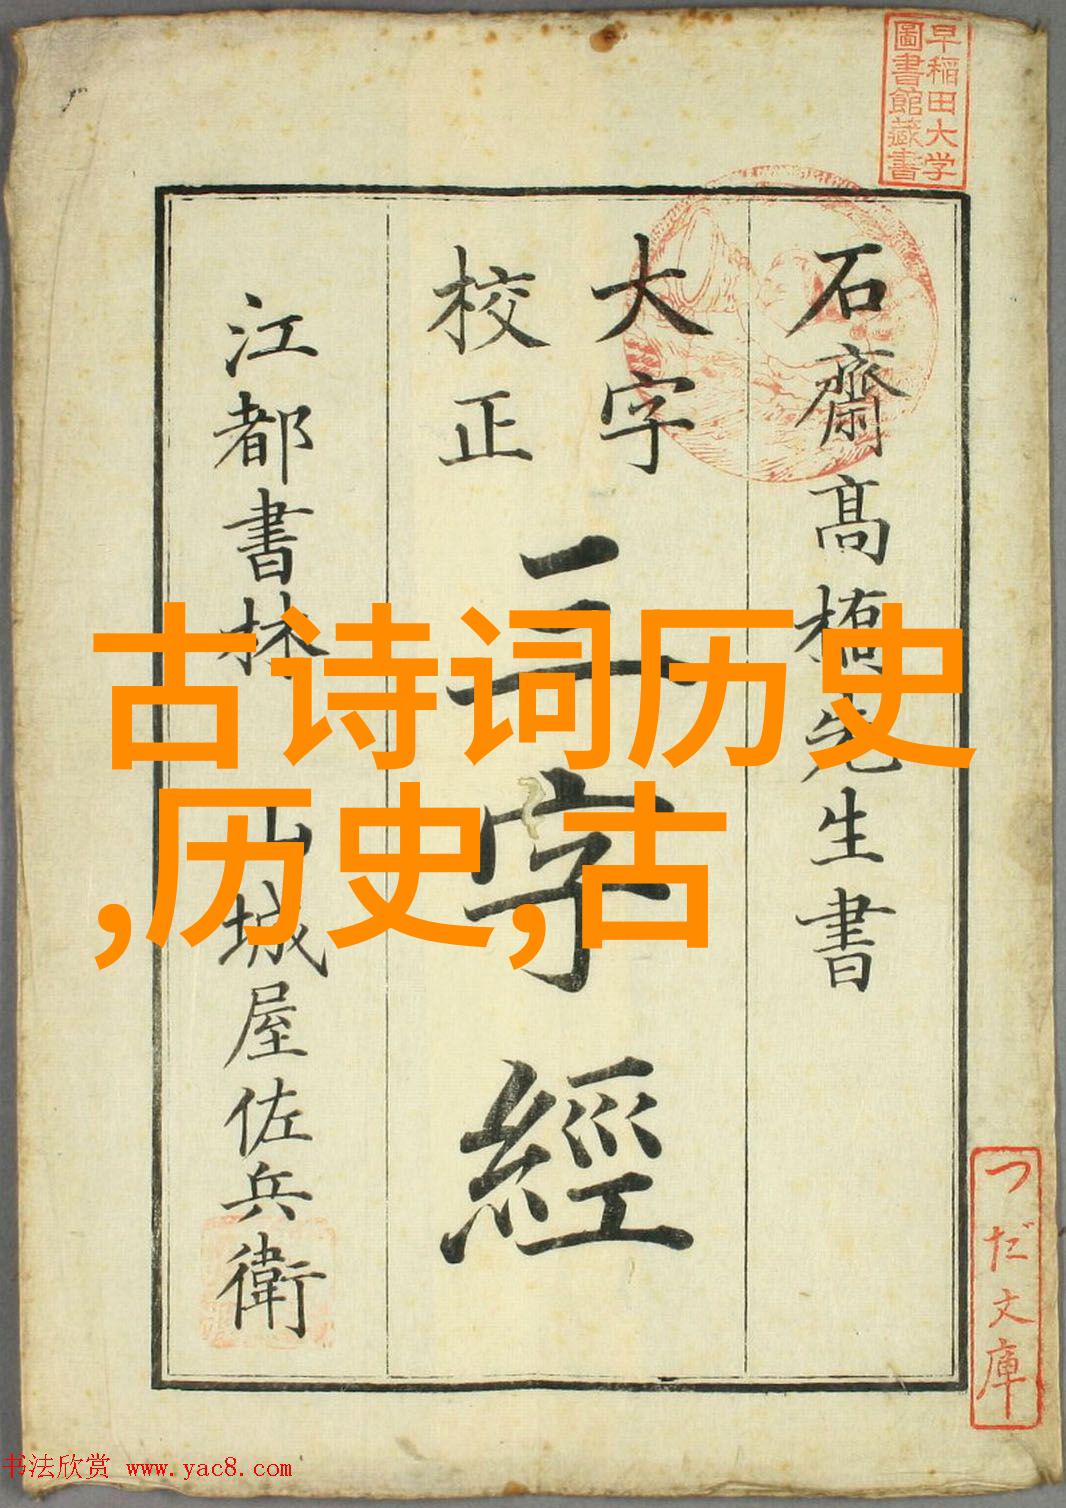 早稲田大学
圖書館藏書
石齋髙橋先生書
大字
校正
三字經
江都書林 山城屋佐兵衛
つだ文庫
古诗词历史
,历史,古
书法欣赏 www.yac8.com